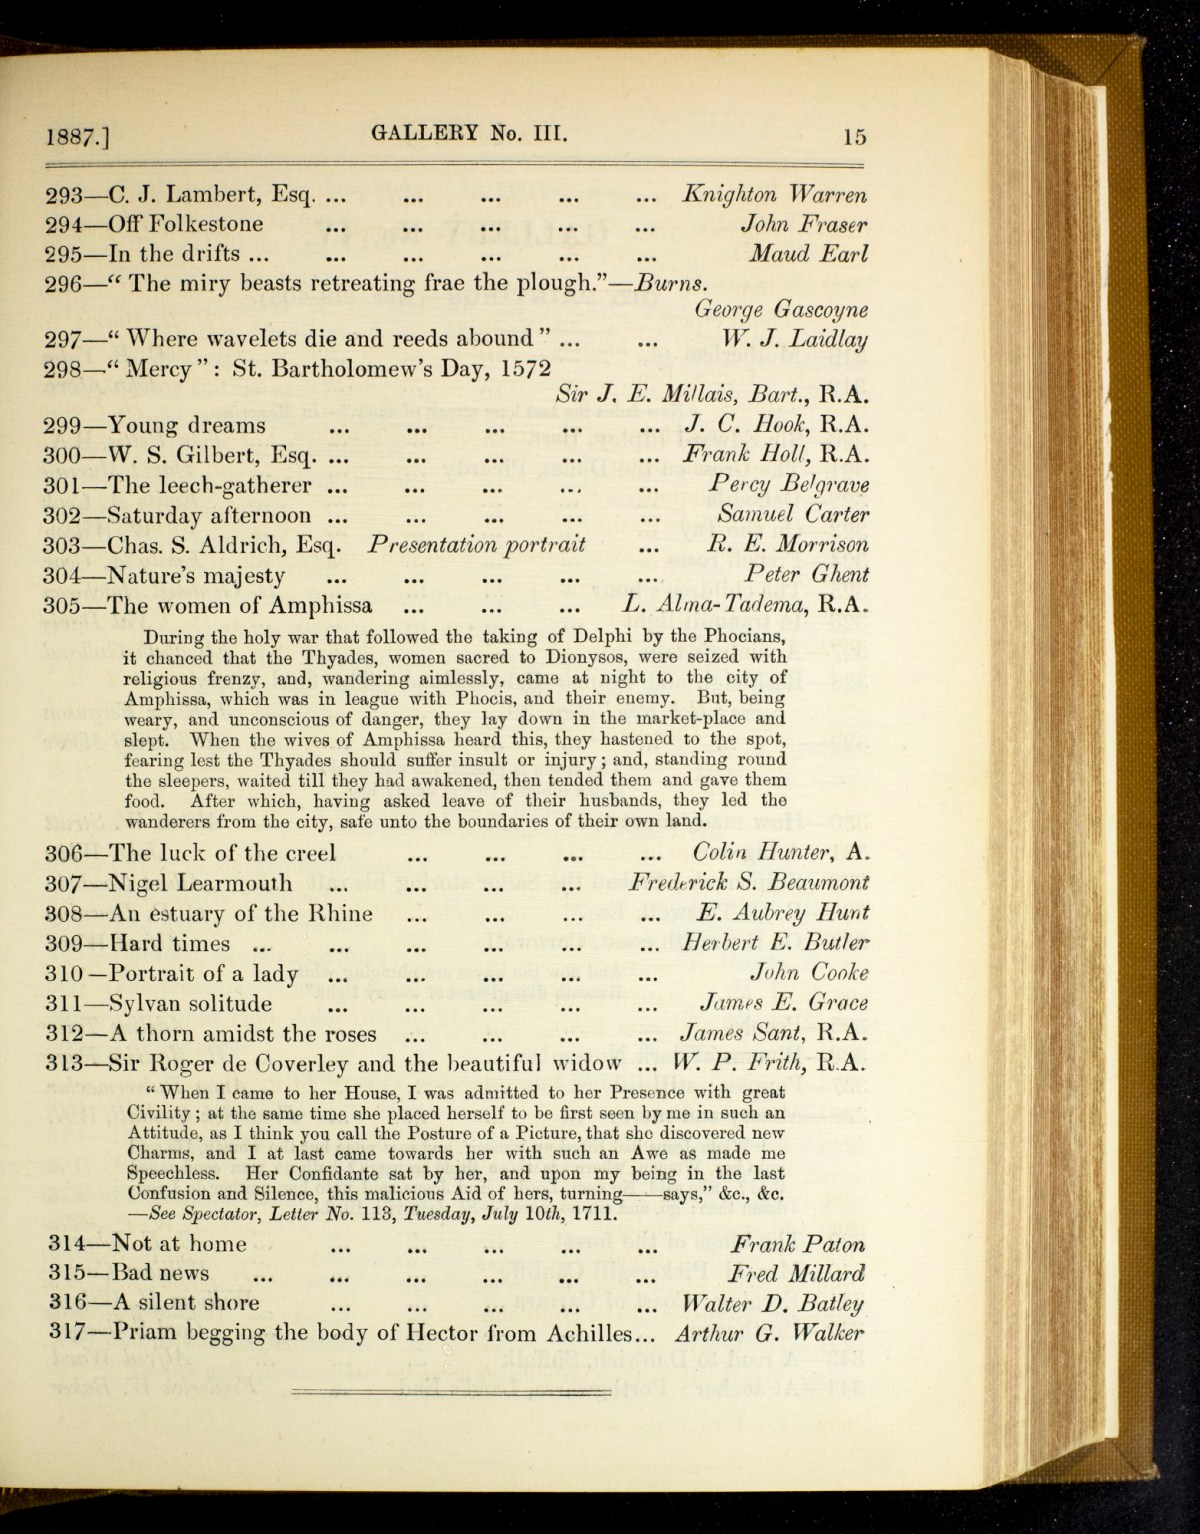 1887.] GALLERY No. III. 15
293—C. J. Lambert, Esq. ... ... ... ... ... Knighton Warren
294—Off Folkestone ... ... ... ... ... John Fraser
295—In the drifts ... ... ... ... ... ... Maud Earl
296—“ The miry beasts retreating frae the plough.”—Burns.
George Gascoyne
297—“ Where wavelets die and reeds abound ” ... ... W. J. Laidlay
298—“ Mercy ” : St. Bartholomew’s Day, 1572
Sir J. E. Millais, Bart., R.A.
299—Young dreams ... ... ... ... ... J. C. Hook, R.A.
300—W. S. Gilbert, Esq. ... ... ... ... ... Frank Holl, R.A.
301—The leech-gatherer ... ... ... ... ... Percy Belgrave
302—Saturday afternoon ... ... ... ... ... Samuel Carter
303—Chas. S. Aldrich, Esq. Presentation portrait ... R. E. Morrison
304—Nature’s majesty ... ... ... ... ... Peter Ghent
305—The women of Amphissa ... ... ... L. Alma-Tadema, R.A.
During the holy war that followed the taking of Delphi by the Phocians,
it chanced that the Thyades, women sacred to Dionysos, were seized with
religious frenzy, and, wandering aimlessly, came at night to the city of
Amphissa, which was in league with Phocis, and their enemy. But, being
weary, and unconscious of danger, they lay down in the market-place and
slept. When the wives of Amphissa heard this, they hastened to the spot,
fearing lest the Thyades should suffer insult or injury; and, standing round
the sleepers, waited till they had awakened, then tended them and gave them
food. After which, having asked leave of their husbands, they led the
wanderers from the city, safe unto the boundaries of their own land.
306—The luck of the creel ... ... ... ... Colin Hunter, A.
307—Nigel Learmouth ... ... ... ... Frederick S. Beaumont
308—An estuary of the Rhine ... ... ... ... E. Aubrey Hunt
309—Hard times ... ... ... ... ... ... Herbert E. Butler
310—Portrait of a lady ... ... ... ... ... John Cooke
311—Sylvan solitude ... ... ... ... ... James E. Grace
312—A thorn amidst the roses ... ... ... ... James Sant, R.A.
313—Sir Roger de Coverley and the beautiful widow ... W. P. Frith, R.A.
“ When I came to her House, I was admitted to her Presence with great
Civility ; at the same time she placed herself to be first seen by me in such an
Attitude, as I think you call the Posture of a Picture, that she discovered new
Charms, and I at last came towards her with such an Awe as made me
Speechless. Her Confidante sat by her, and upon my being in the last
Confusion and Silence, this malicious Aid of hers, turning——says,” &c., &c.
—See Spectator, Letter No. 113, Tuesday, July 10th, 1711.
314—Not at home ... ... ... ... ... Frank Paton
315—Bad news ... ... ... ... ... ... Fred Millard
316—A silent shore ... ... ... ... ... Walter D. Batley
317—Priam begging the body of Hector from Achilles... Arthur G. Walker